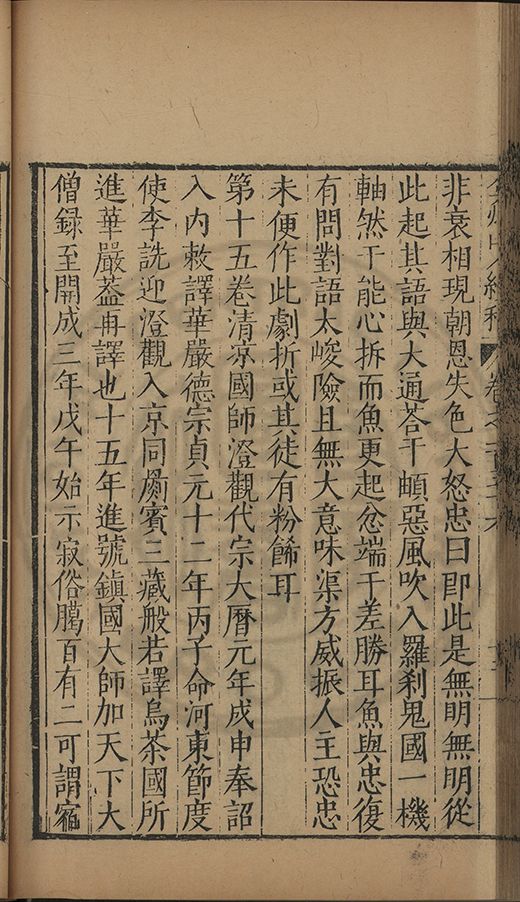 非衰相現朝恩失色大怒忠曰卽此是無明無明從
此起其語與大通荅于頔惡風吹入羅刹鬼國一機
軸然于能心拆而魚更起忿端于差勝耳魚與忠復
有問對語太峻險且無大意味渠方威振人主恐忠
未便作此劇折或其徒有粉餙耳
第十五卷清凉國師澄觀代宗大曆元年戍申奉詔
入内敕譯華嚴德宗貞元十二年丙子命河東節度
使李詵迎澄觀入京同罽賓三藏般若譯烏茶國所
進華嚴葢再譯也十五年進號鎮國大師加天下大
僧録至開成三年戊午始示寂俗臈百有二可謂窹